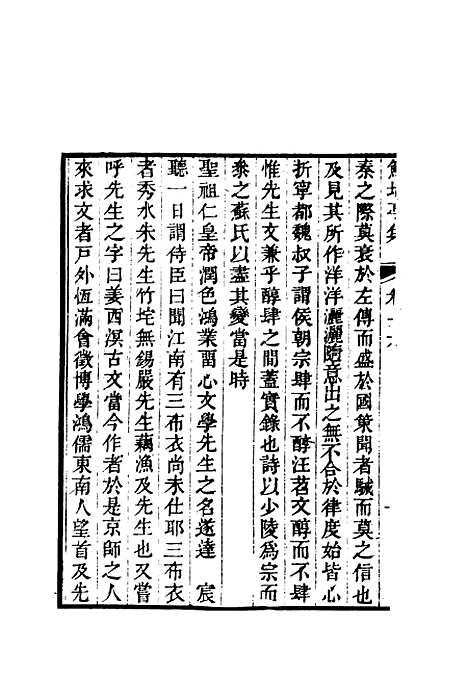 鮚埼亭集 卷十六
秦之際莫衰於左傳而盛於國策聞者駴而莫之信也
及見其所作洋洋灑灑隨意出之無不合於律度始皆心
折寧都魏叔子謂侯朝宗肆而不醇汪苕文醇而不肆
惟先生文兼乎醇肆之間蓋實錄也詩以少陵為宗而
叅之蘇氏以盡其變當是時
聖祖仁皇帝潤色鴻業畱心文學先生之名遂達 宸
聽一日謂侍臣曰聞江南有三布衣尚未仕耶三布衣
者秀水朱先生竹垞無錫嚴先生藕漁及先生也又嘗
呼先生之字曰姜西溟古文當今作者於是京師之人
來求文者戶外恆滿會徵博學鴻儒東南人望首及先